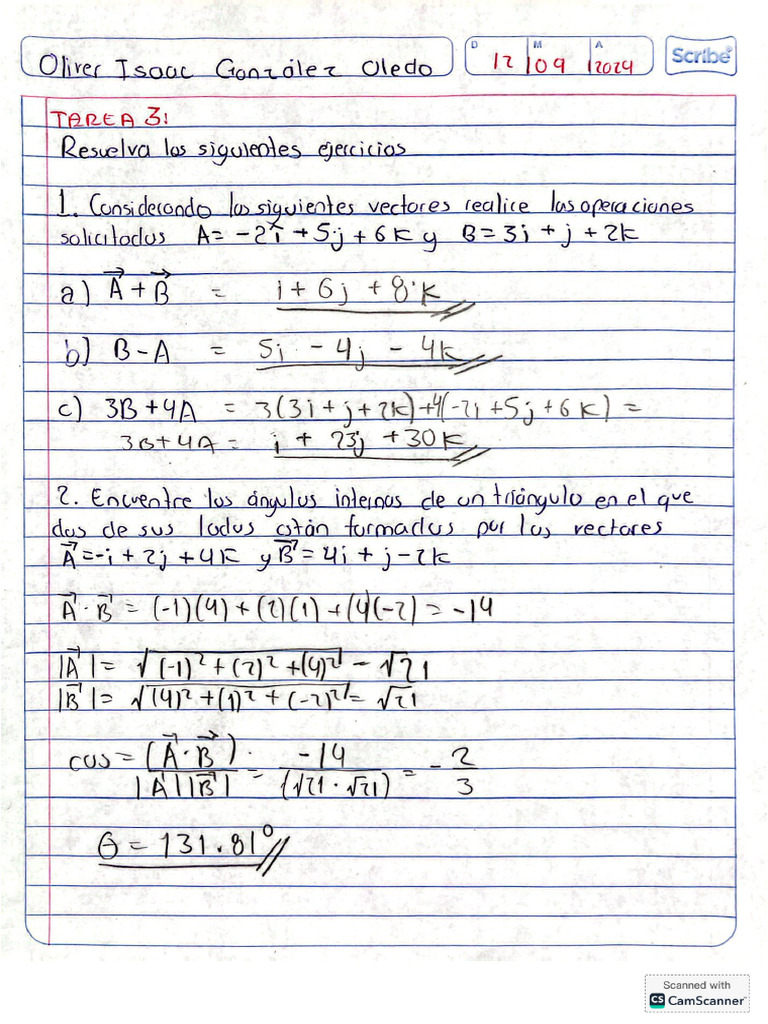 Oliver Isaac González Oledo
D M A
12 09 2024
Scribe
TAREA 3:
Resuelva los siguientes ejercicios
1. Considerando los siguientes vectores realice las operaciones
solicitados A = -2i + 5j + 6k y B = 3i + j + 2k
a) A + B = i + 6j + 8k
b) B - A = 5i - 4j - 4k
c) 3B + 4A = 3(3i + j + 2k) + 4(-2i + 5j + 6k) =
3B + 4A = i + 23j + 30k
2. Encuentre los ángulos internos de un triángulo en el que
dos de sus lados están formados por los vectores
A = -i + 2j + 4k y B = 4i + j - 2k
A · B = (-1)(4) + (2)(1) + (4)(-2) = -14
|A| = √(-1)² + (2)² + (4)² - √21
|B| = √(4)² + (1)² + (-2)² = √21
cos = (A · B) / |A||B| = -14 / (√21 · √21) = - 2/3
θ = 131.81°
Scanned with
CS CamScanner